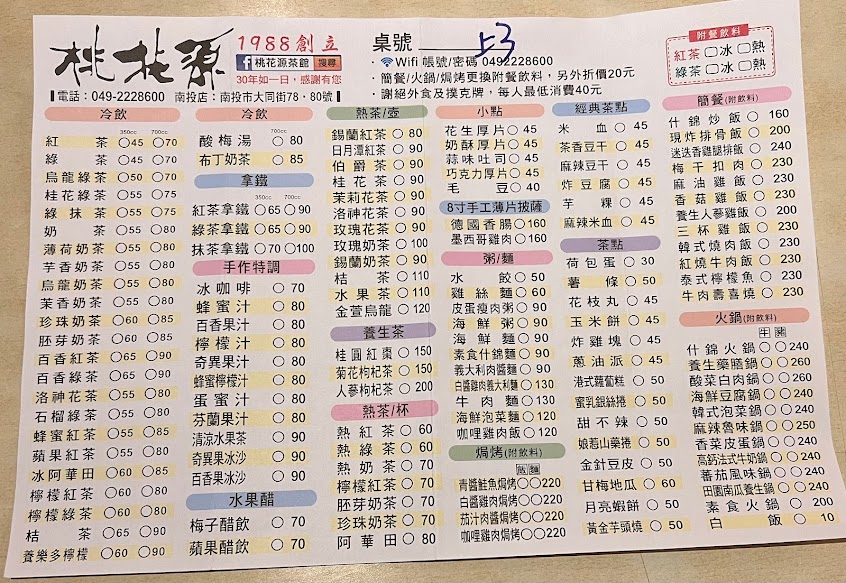 桃花源
1988創立
f 桃花源茶館 搜尋
30年如一日，感謝有您
電話：049-2228600 南投店：南投市大同街78・80號
桌號 上3
・Wifi 帳號/密碼 0492228600
・簡餐/火鍋/焗烤更換附餐飲料，另外折價20元
・謝絕外食及撲克牌，每人最低消費40元
附餐飲料
紅茶 冰 熱
綠茶 冰 熱
冷飲
350cc 700cc
紅茶 45 70
綠茶 45 70
烏龍綠茶 50 70
桂花綠茶 55 75
綠抹茶 55 75
奶茶 55 80
薄荷奶茶 55 80
芋香奶茶 55 80
烏龍奶茶 55 80
茉香奶茶 55 80
珍珠奶茶 60 85
胚芽奶茶 60 85
百香紅茶 65 90
百香綠茶 65 90
洛神花茶 55 80
石榴綠茶 55 80
蜂蜜紅茶 55 85
蘋果紅茶 55 80
冰阿華田 60 80
檸檬紅茶 60 80
檸檬綠茶 60 80
桔茶 65 90
養樂多檸檬 60 90
冷飲
700cc
酸梅湯 80
布丁奶茶 85
拿鐵
350cc 700cc
紅茶拿鐵 65 90
綠茶拿鐵 65 90
抹茶拿鐵 70 100
手作特調
冰咖啡 70
蜂蜜汁 80
百香果汁 80
檸檬汁 80
奇異果汁 80
蜂蜜檸檬汁 80
蛋蜜汁 80
芬蘭果汁 80
清涼水果茶 90
奇異果冰沙 90
百香果冰沙 90
水果醋
梅子醋飲 70
蘋果醋飲 70
熱茶/壺
錫蘭紅茶 80
日月潭紅茶 90
伯爵茶 90
桂花茶 90
茉莉花茶 90
洛神花茶 90
玫瑰花茶 90
玫瑰奶茶 100
錫蘭奶茶 90
桔茶 110
水果茶 110
金萱烏龍 120
養生茶
桂圓紅棗 150
菊花枸杞茶 150
人蔘枸杞茶 200
熱茶/杯
熱紅茶 60
熱綠茶 60
熱奶茶 70
檸檬紅茶 70
胚芽奶茶 70
珍珠奶茶 70
阿華田 80
小點
花生厚片 45
奶酥厚片 45
蒜味吐司 45
巧克力厚片 45
毛豆 40
8寸手工薄片披薩
德國香腸 160
墨西哥雞肉 160
粥/麵
水餃 50
雞絲麵 60
皮蛋瘦肉粥 90
海鮮粥 90
海鮮麵 90
素食什錦麵 90
義大利肉醬麵 90
白醬雞肉義大利麵 130
牛肉麵 130
海鮮泡菜麵 120
咖哩雞肉飯 120
焗烤(附飲料)
飯 麵
青醬鮭魚焗烤 220
白醬雞肉焗烤 220
茄汁肉醬焗烤 220
咖哩雞肉焗烤 220
經典茶點
米血 45
茶香豆干 45
麻辣豆干 45
炸豆腐 45
芋粿 45
麻辣米血 45
茶點
荷包蛋 30
薯條 50
花枝丸 45
玉米餅 45
炸雞塊 45
蔥油派 45
港式蘿蔔糕 50
蜜乳銀絲捲 50
甜不辣 50
娘惹山藥捲 50
金針豆皮 50
甘梅地瓜 60
月亮蝦餅 50
黃金芋頭燒 50
簡餐(附飲料)
什錦炒飯 160
現炸排骨飯 200
迷迭香雞腿排飯 240
梅干扣肉 230
麻油雞飯 230
香菇雞飯 230
養生人蔘雞飯 230
三杯雞飯 230
韓式燒肉飯 230
紅燒牛肉飯 230
泰式檸檬魚 230
牛肉壽喜燒 230
火鍋(附飲料)
牛 豬
什錦火鍋 240
養生藥膳鍋 260
酸菜白肉鍋 240
海鮮豆腐鍋 240
韓式泡菜鍋 240
麻辣魯味鍋 250
香菜皮蛋鍋 240
高鈣法式牛奶鍋 240
蕃茄風味鍋 240
田園南瓜養生鍋 240
素食火鍋 200
白飯 10